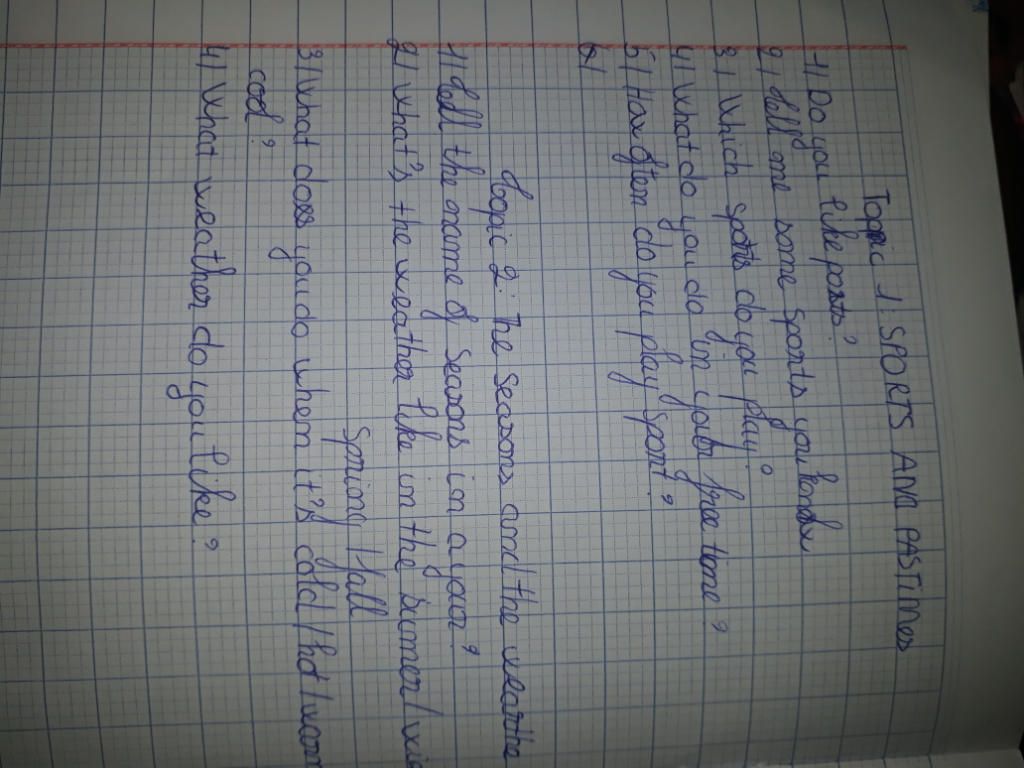 Topic 1: SPORTS AND PASTIMES
1) Do you like posts?
2) tell me some sports you
3) Which spots do you play?
4) What do you do in your free time?
5) How often do you play sport?
Topic 2: The seasons and the weathe
1) tell the name of seasons in a year?
2) what's the weather like in the sumer / wi
Spring / fall
3) what does you do when it's cold / hot / warm
cool?
4) what weather do you like?